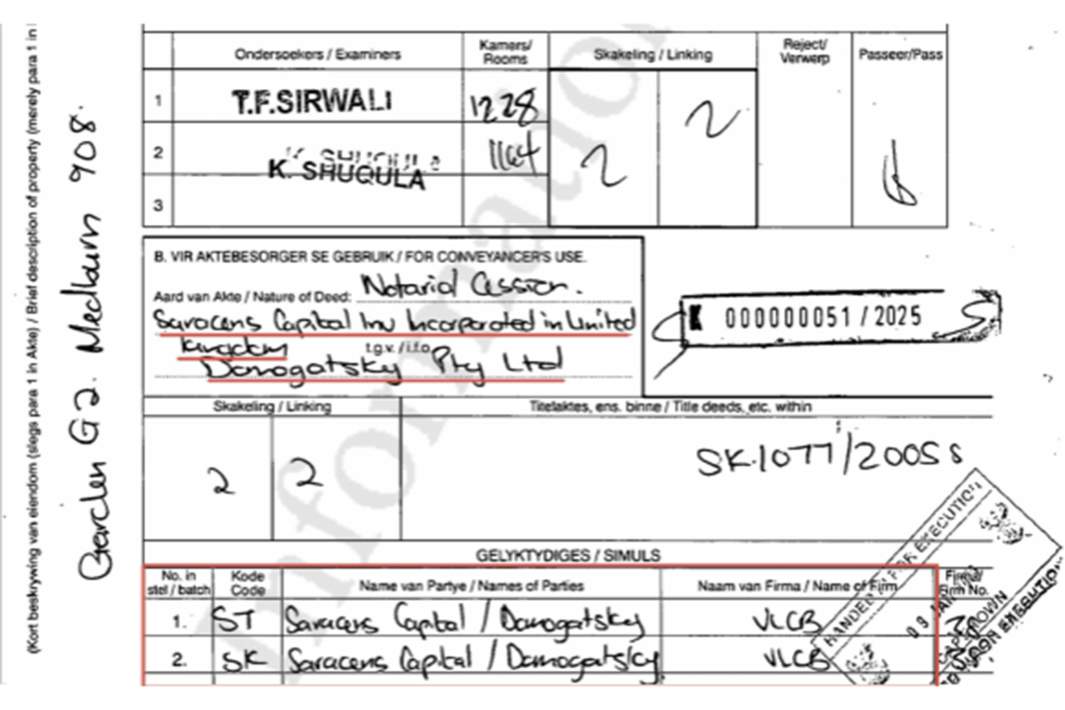 (Kort beskrywing van eiendom (slegs para 1 in Akte) / Brief description of property (merely para 1 in
Garden G2. Medburn 908.
Ondersoekers / Examiners
Kamers/
Rooms
Skakeling / Linking
Reject/
Verwerp
Passeer/Pass
1 T.F.SIRWALI 1228 2
2 K. SHUQULA 2
3
B. VIR AKTEBESORGER SE GEBRUIK / FOR CONVEYANCER'S USE.
Aard van Akte / Nature of Deed: Notarial Cession.
Saracens Capital Inv Incorporated in United
Kingdom t.g.v. / i.f.o.
Damogatsky Pty Ltd
K 000000051 / 2025
Skakeling / Linking
Titelaktes, ens. binne / Title deeds, etc. within
2 2
SK1077/2005 S
GELYKTYDIGES / SIMULS
No. in
stel / batch
Kode
Code
Name van Partye / Names of Parties
Naam van Firma / Name of Firm
Firma/
Firm No.
1. ST Saracens Capital / Damogatsky VLCB
2. SK Saracens Capital / Damogatsky VLCB
HANDED IN FOR EXECUTION
09 JAN
FOR EXECUTION
Information